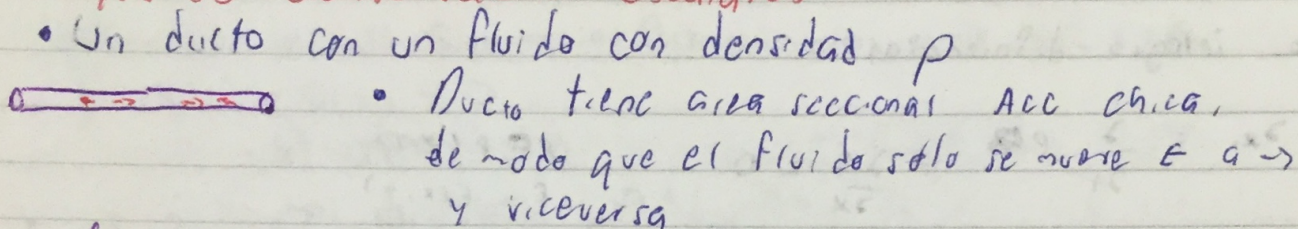 • Un ducto con un fluido con densidad ρ
• Ducto tiene area seccional Acc chica,
de modo que el fluido sólo se mueve ← a →
y viceversa